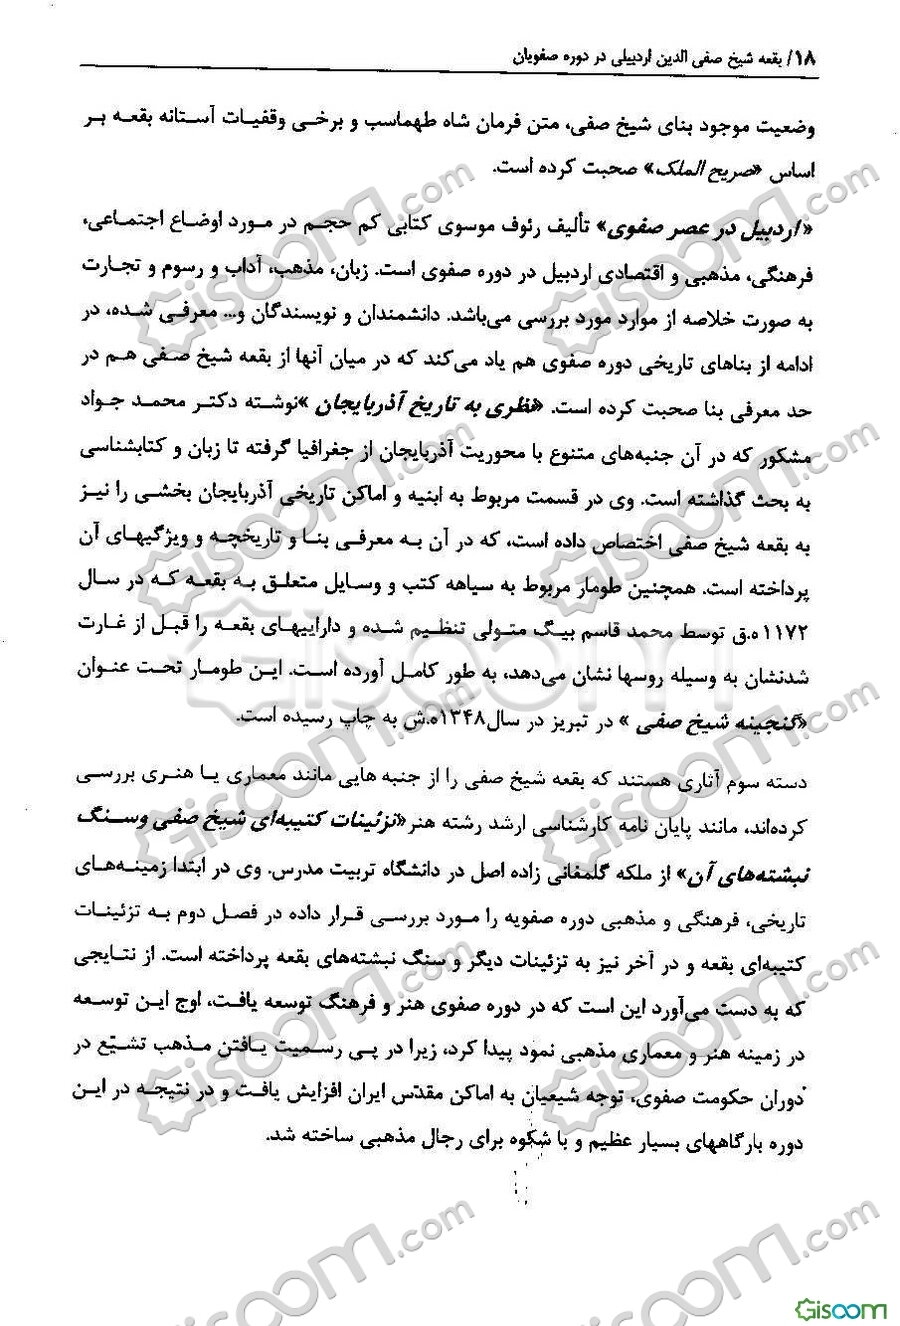 ۱۸/ بقعه شیخ صفی الدین اردبیلی در دوره صفویان
وضعیت موجود بنای شیخ صفی، متن فرمان شاه طهماسب و برخی وقفیات آستانه بقعه بر
اساس «صریح الملک» صحبت کرده است.
«اردبیل در عصر صفوی» تألیف رئوف موسوی کتابی کم حجم در مورد اوضاع اجتماعی،
فرهنگی، مذهبی و اقتصادی اردبیل در دوره صفوی است. زبان، مذهب، آداب و رسوم و تجارت
به صورت خلاصه از موارد مورد بررسی می‌باشد. دانشمندان و نویسندگان و... معرفی شده، در
ادامه از بناهای تاریخی دوره صفوی هم یاد می‌کند که در میان آنها از بقعه شیخ صفی هم در
حد معرفی بنا صحبت کرده است. «نظری به تاریخ آذربایجان »نوشته دکتر محمد جواد
مشکور که در آن جنبه‌های متنوع با محوریت آذربایجان از جغرافیا گرفته تا زبان و کتابشناسی
به بحث گذاشته است. وی در قسمت مربوط به ابنیه و اماکن تاریخی آذربایجان بخشی را نیز
به بقعه شیخ صفی اختصاص داده است، که در آن به معرفی بنا و تاریخچه و ویژگیهای آن
پرداخته است. همچنین طومار مربوط به سیاهه کتب و وسایل متعلق به بقعه که در سال
۱۱۷۲ه.ق توسط محمد قاسم بیگ متولی تنظیم شده و داراییهای بقعه را قبل از غارت
شدنشان به وسیله روسها نشان می‌دهد، به طور کامل آورده است. این طومار تحت عنوان
«گنجینه شیخ صفی » در تبریز در سال۱۳۴۸ه.ش به چاپ رسیده است.
دسته سوم آثاری هستند که بقعه شیخ صفی را از جنبه هایی مانند معماری یا هنری بررسی
کرده‌اند، مانند پایان نامه کارشناسی ارشد رشته هنر«تزئینات کتیبه‌ای شیخ صفی وسنگ
نبشته‌های آن» از ملکه گلمغانی زاده اصل در دانشگاه تربیت مدرس. وی در ابتدا زمینه‌های
تاریخی، فرهنگی و مذهبی دوره صفویه را مورد بررسی قرار داده در فصل دوم به تزئینات
کتیبه‌ای بقعه و در آخر نیز به تزئینات دیگر و سنگ نبشته‌های بقعه پرداخته است. از نتایجی
که به دست می‌آورد این است که در دوره صفوی هنر و فرهنگ توسعه یافت، اوج این توسعه
در زمینه هنر و معماری مذهبی نمود پیدا کرد، زیرا در پی رسمیت یافتن مذهب تشیّع در
دوران حکومت صفوی، توجه شیعیان به اماکن مقدّس ایران افزایش یافت و در نتیجه در این
دوره بارگاههای بسیار عظیم و با شکوه برای رجال مذهبی ساخته شد.
Gisoom